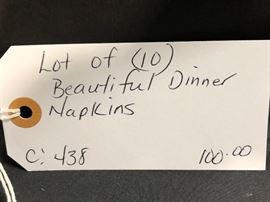 Lot of (10)
Beautiful Dinner
Napkins
C: 438 100.00